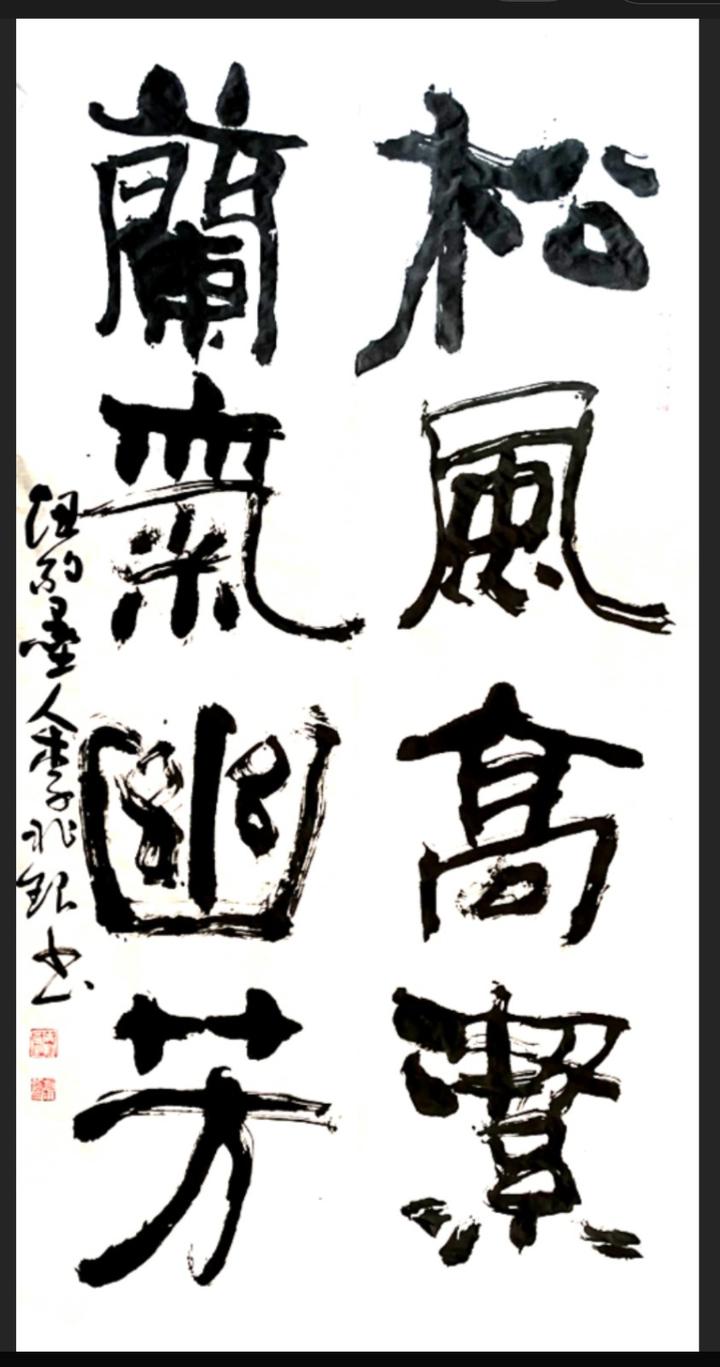 松風高潔
蘭氣幽芳
紐約墨人李兆銀书